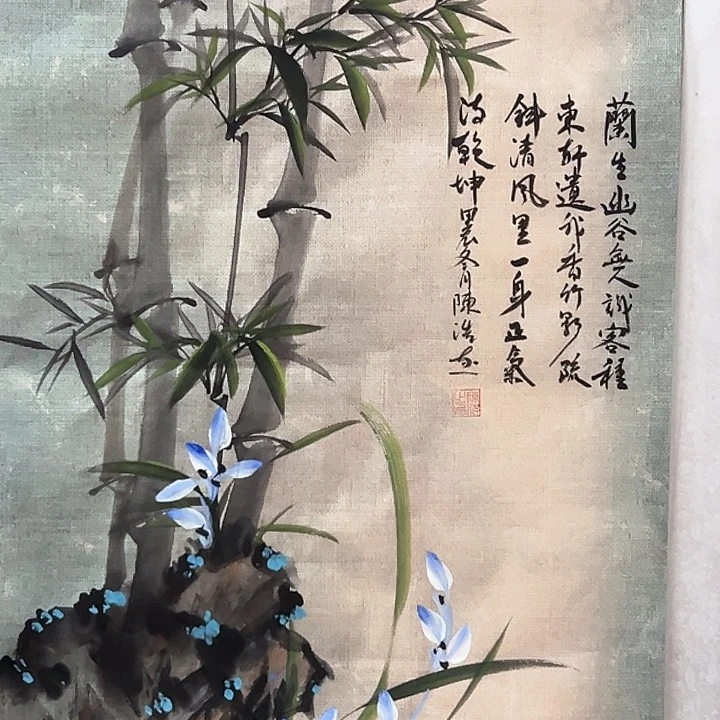 蘭生幽谷無人識客種
東軒遺我香竹影疏
斜清風里一身正氣
满乾坤甲辰冬月陳浩画